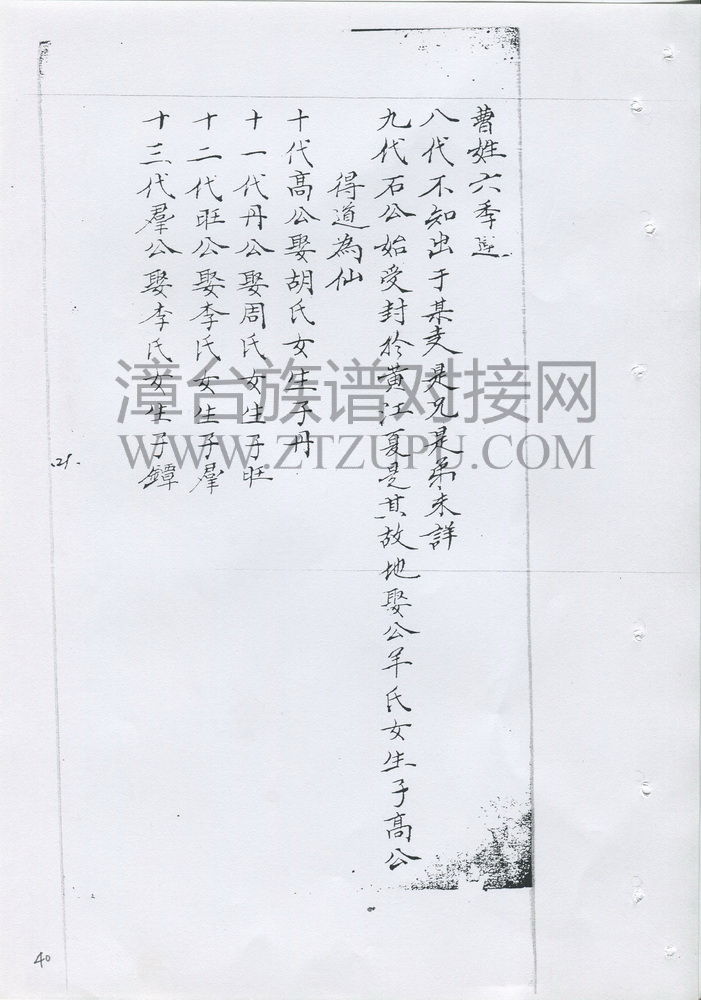 曹姓六季連
八代不知出于某支是兄是弟未詳
九代石公始受封於黃江夏是其故地娶公羊氏女生子高公
得道為仙
十代高公娶胡氏女生子丹
十一代丹公娶周氏女生子旺
十二代旺公娶李氏女生子羣
十三代羣公娶李氏女生子鐔
.21.
40
漳台族谱对接网
WWW.ZTZUPU.COM